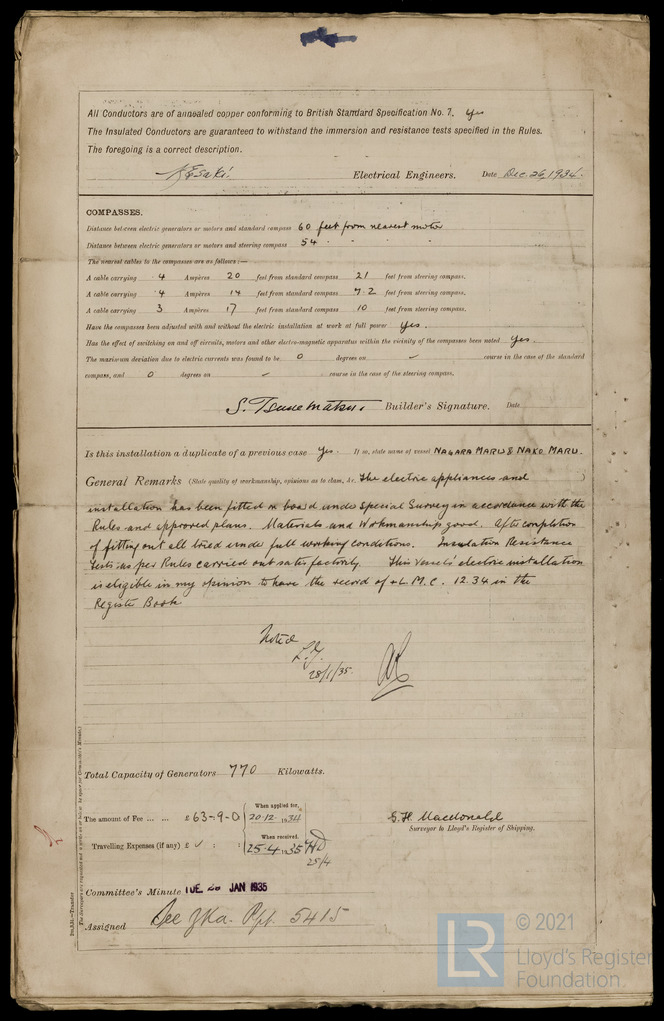 All Conductors are of annealed copper conforming to British Standard Specification No. 7. Yes
The Insulated Conductors are guaranteed to withstand the immersion and resistance tests specified in the Rules.
The foregoing is a correct description.
Electrical Engineers. Date Dec 26, 1934.
COMPASSES.
Distance between electric generators or motors and standard compass 60 feet from nearest motor
Distance between electric generators or motors and steering compass 54 " " " "
The nearest cables to the compasses are as follows:—
A cable carrying 4 Ampères 20 feet from standard compass 21 feet from steering compass.
A cable carrying 4 Ampères 14 feet from standard compass 7.2 feet from steering compass.
A cable carrying 3 Ampères 17 feet from standard compass 10 feet from steering compass.
Have the compasses been adjusted with and without the electric installation at work at full power Yes.
Has the effect of switching on and off circuits, motors and other electro-magnetic apparatus within the vicinity of the compasses been noted Yes.
The maximum deviation due to electric currents was found to be 0 degrees on – course in the case of the standard
compass, and 0 degrees on – course in the case of the steering compass.
S. Tsunematsu Builder's Signature. Date
Is this installation a duplicate of a previous case Yes. If so, state name of vessel NAGARA MARU & NAKO MARU.
General Remarks (State quality of workmanship, opinions as to class, &c. The electric appliances and )
installation has been fitted on board under Special Survey in accordance with the
Rules and approved plans. Materials and Workmanship good. After completion
of fitting out all tried under full working conditions. Insulation Resistance
tests as per Rules carried out satisfactorily. This vessels' electric installation
is eligible in my opinion to have the record of + L.M.C. 12.34 in the
Register Book
Noted
28/1/35.
Total Capacity of Generators 770 Kilowatts.
The amount of Fee ... ... £ 63-9-0 When applied for, 20.12.1934
Travelling Expenses (if any) £ ✓ : : When received, 25.4.1935
25/4
S. H. Macdonald
Surveyor to Lloyd's Register of Shipping.
Committee's Minute TUE. 29 JAN 1935
Assigned See Rpt. 5415
© 2021
LR
Lloyd's Register
Foundation